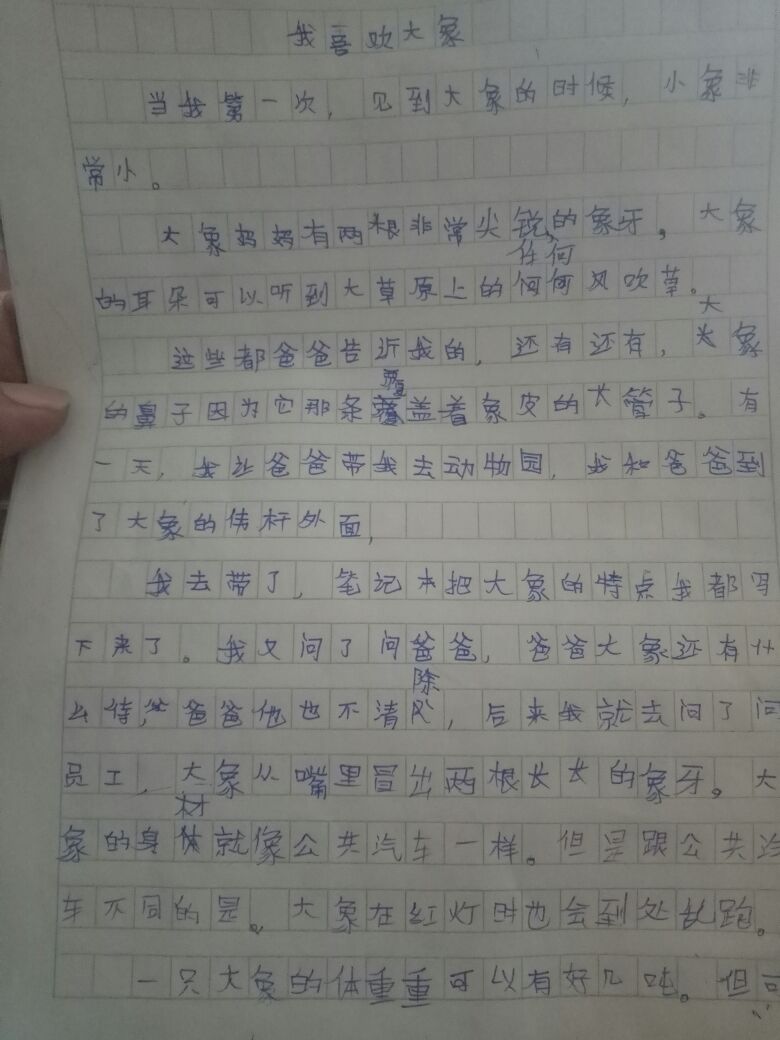 我喜欢大象
当我第一次，见到大象的时候，小象非
常小。
大象妈妈有两根非常尖锐的象牙，大象
任何
的耳朵可以听到大草原上的何何风吹草。
这些都爸爸告近我的，还有还有，大象
的鼻子因为它那条覆盖着象皮的大管子。有
一天，我让爸爸带我去动物园，我和爸爸到
了大象的杆外面，
我去带了，笔记本把大象的特点我都写
下来了。我又问了问爸爸，爸爸大象还有什
么待，爸爸他也不清，后来我就去问了问
除
员工，大象从嘴里冒出两根长长的象牙。大
材
象的身体就像公共汽车一样。但是跟公共汽
车不同的是。大象在红灯时也会到处乱跑。
一只大象的体重重可以有好几吨。但可